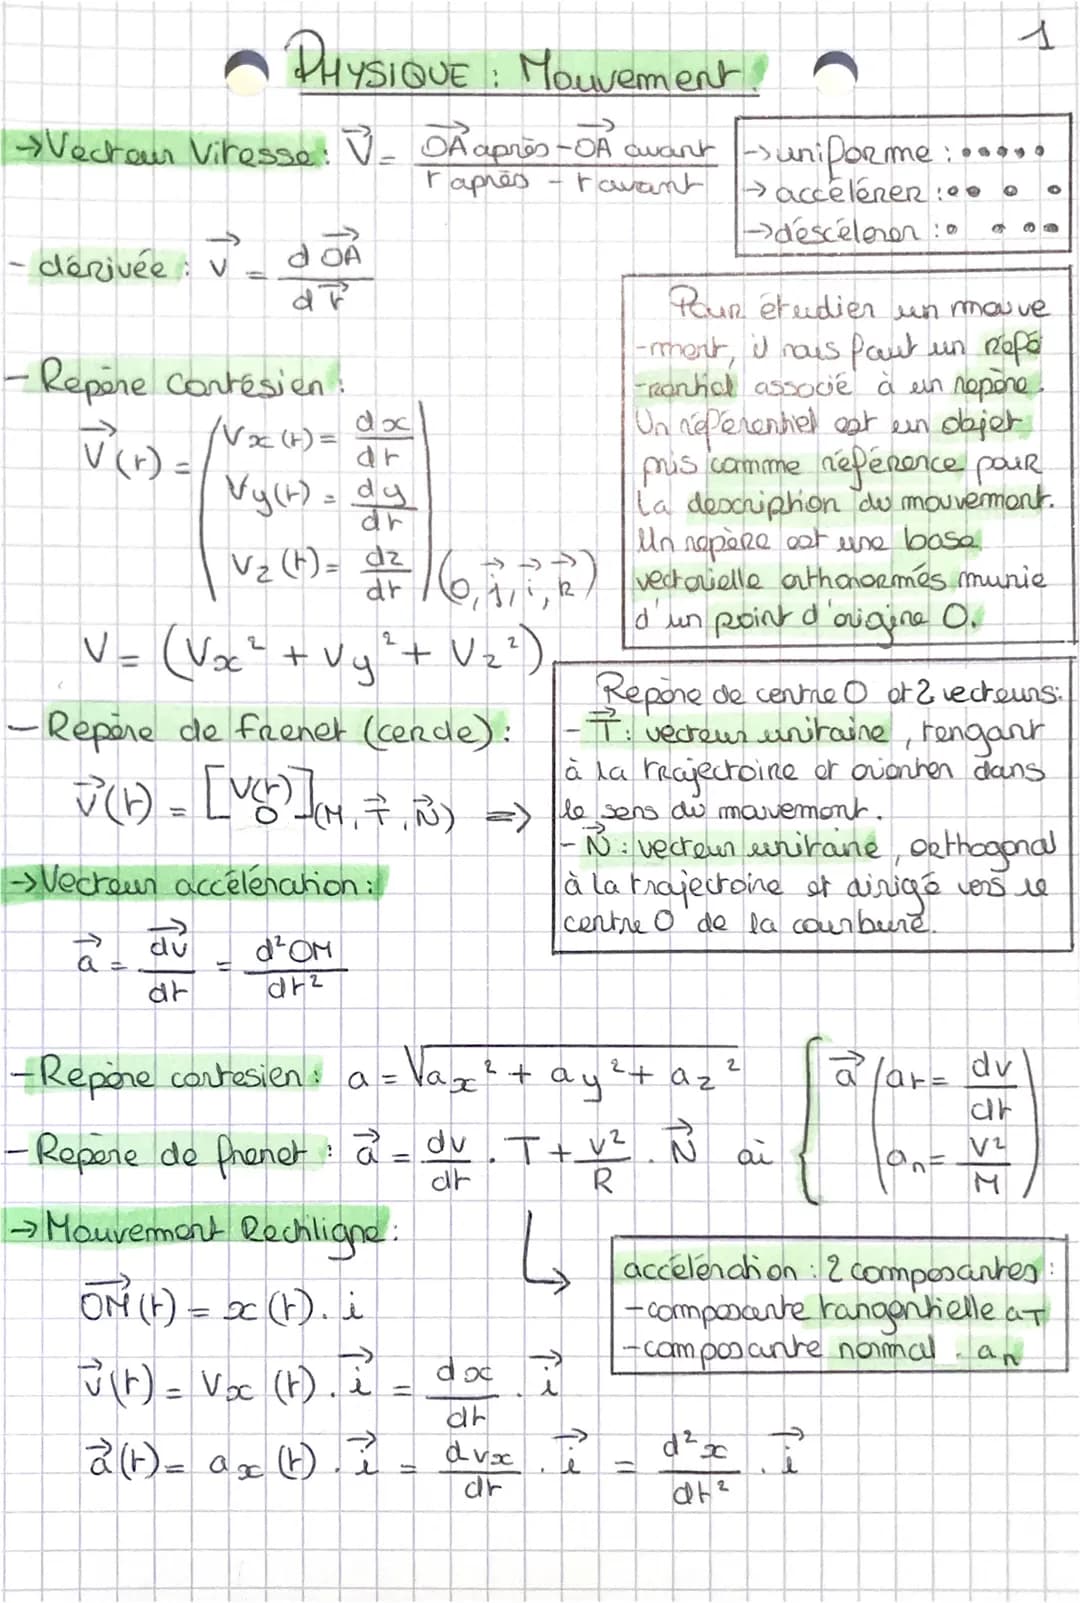 1
PHYSIQUE : Mouvement.
→Vecteur Vitesse : V⃗ = (OA⃗ après - OA⃗ avant) / (t après - t avant)
→uniforme : •••••
→accélérer : •• • •
→déscélerer : • • ••
- dérivée : v⃗ = dOA⃗ / dt⃗
Pour étudier un mouve
-ment, il nous faut un réfé
-rentiel associé à un repère.
Un référentiel est un objet
pris comme référence pour
la description du mouvement.
Un repère est une base
vectorielle orthonormés munie
d'un point d'origine O.
- Repère Cartésien :
V⃗(t) = ( Vx(t) = dx/dt
Vy(t) = dy/dt
Vz(t) = dz/dt ) (O, j⃗, i⃗, k⃗)
V = (Vx² + Vy² + Vz²)
Repère de centre O et 2 vecteurs:
- T⃗ : vecteur unitaire, tengant
à la trajectoire et orienter dans
le sens du mouvement.
- N⃗ : vecteur unitaire, orthogonal
à la trajectoire et dirigé vers le
centre O de la courbure.
- Repère de Frenet (cercle) :
V⃗(t) = [V(t) 0] (M, T⃗, N⃗) ⇒
→Vecteur accélération :
a⃗ = dv⃗/dt = d²OM/dt²
- Repère cartesien : a = √ax² + ay² + az²
- Repère de frenet : a⃗ = dv/dt . T + v²/R . N⃗ où { a⃗ ( at = dv/dt
an = V²/M )
→Mouvement Rectiligne :
accélération : 2 composantes :
- composante tangentielle aT
- composante normal . an
OM⃗(t) = x(t). i
v⃗(t) = Vx(t) . i⃗ = dx/dt . i⃗
a⃗(t) = ax(t) . i⃗ = dvx/dt . i⃗ = d²x/dt² . i⃗